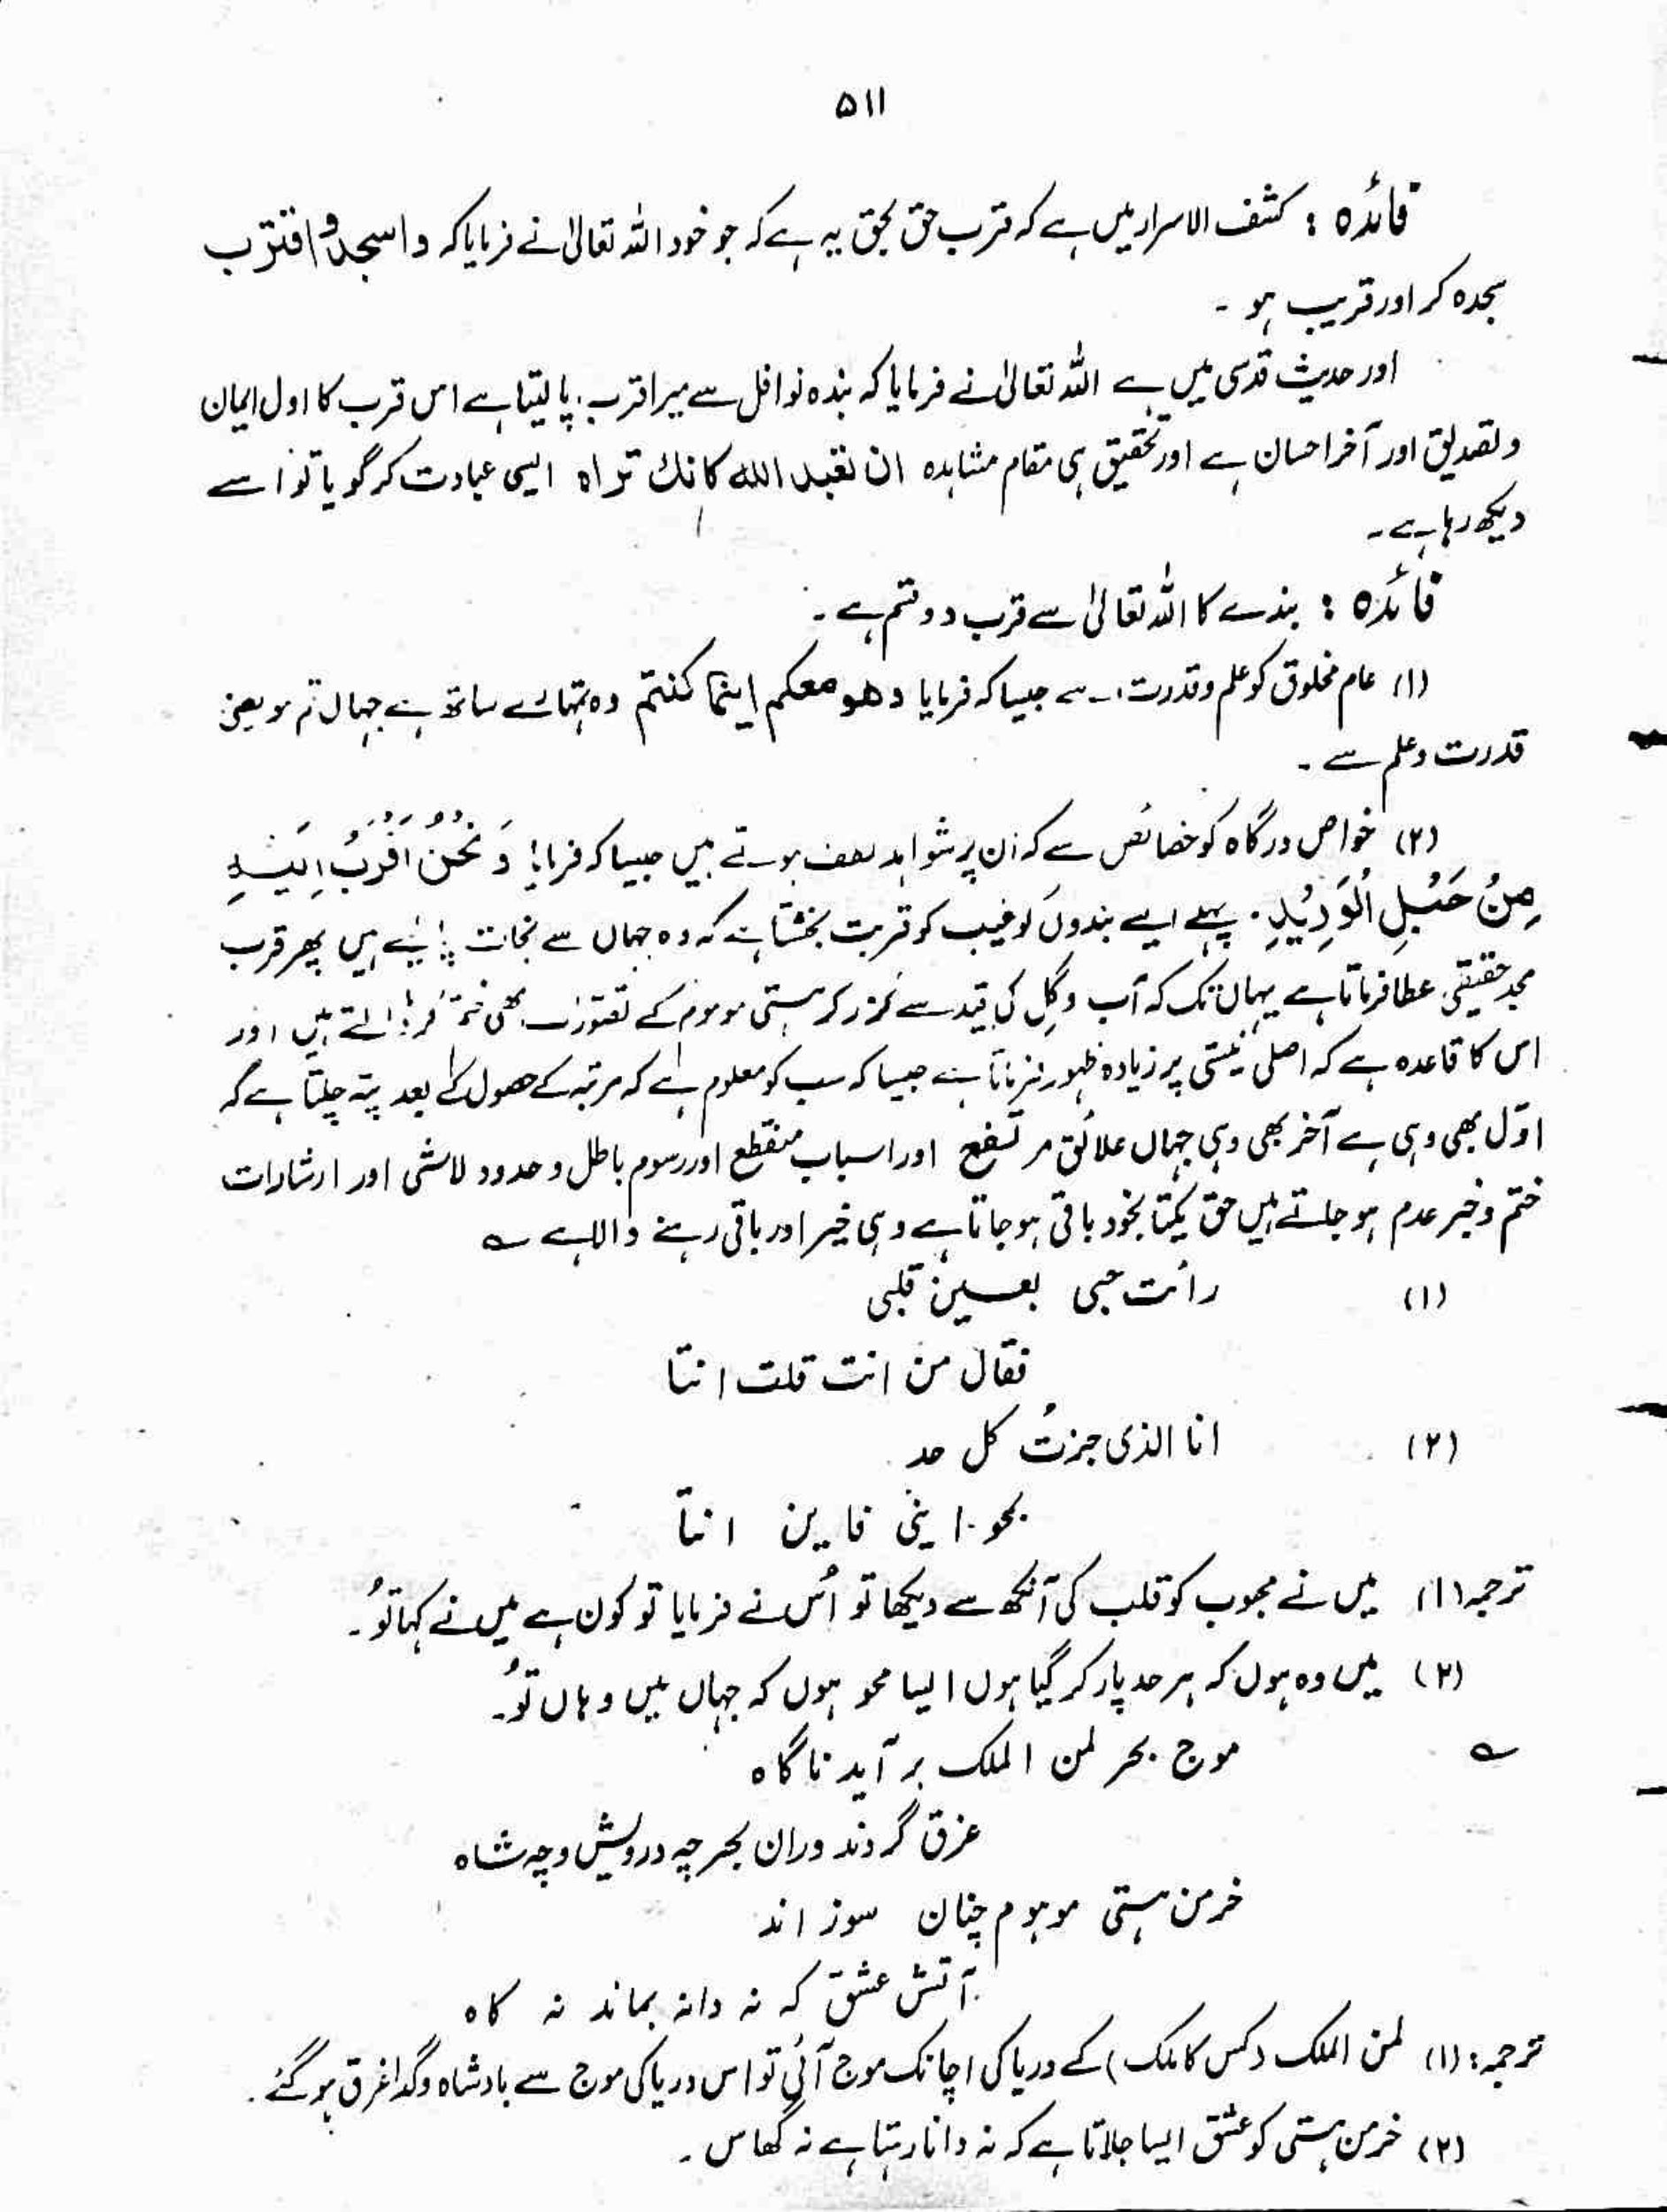 ۵۱۱
فائدہ : کشف الاسرار میں ہے کہ قرب حق بحق یہ ہے کہ جو خود اللہ تعالیٰ نے فرمایا کہ واسجد واقترب
سجدہ کر اور قریب ہو ۔
اور حدیث قدسی میں ہے اللہ تعالیٰ نے فرمایا کہ بندہ نوافل سے میرا قرب پا لیتا ہے اس قرب کا اول ایمان
وتصدیق اور آخر احسان ہے اور تحقیق ہی مقام مشاہدہ ان تعبد اللہ کانک تراہ ایسی عبادت کر گویا تو اسے
دیکھ رہا ہے۔
فائدہ : بندے کا اللہ تعالیٰ سے قرب دو قسم ہے ۔
(۱) عام مخلوق کو علم وقدرت سے جیسا کہ فرمایا وھو معکم اینما کنتم وہ تمہارے ساتھ ہے جہاں تم ہو یعنی
قدرت وعلم سے ۔
(۲) خواص درگاہ کو خصائص سے کہ ان پر شواہد لطف ہوتے ہیں جیسا کہ فرمایا وَنَحْنُ اَقْرَبُ اِلَیْہِ
مِنْ حَبْلِ الْوَرِیْدِ ۔ پہلے ایسے بندوں کو غیب کو قربت بخشتا ہے کہ وہ جہاں سے نجات پاتے ہیں پھر قرب
مجد حقیقی عطا فرماتا ہے یہاں تک کہ آب وگِل کی قید سے گزر کر ہستی موہوم کے تصورات بھی ختم کر ڈالتے ہیں اور
اس کا قاعدہ ہے کہ اصلی نیستی پر زیادہ ظہور فرماتا ہے جیسا کہ سب کو معلوم ہے کہ مرتبہ کے حصول کے بعد پتہ چلتا ہے کہ
اوّل بھی وہی ہے آخر بھی وہی جہاں علائق مرتفع اور اسباب منقطع اور رسوم باطل وحدود لاشی اور ارشادات
ختم وخبر عدم ہو جاتے ہیں حق یکتا بخود باقی ہو جاتا ہے وہی خیر اور باقی رہنے والا ہے ؎
(۱) رائت حبی بعین قلبی
فقال من انت قلت انتا
(۲) انا الذی جزتُ کل حد
بمحو اینی فاین انتا
ترجمہ (۱) میں نے محبوب کو قلب کی آنکھ سے دیکھا تو اُس نے فرمایا تو کون ہے میں نے کہا تُو۔
(۲) میں وہ ہوں کہ ہر حد پار کر گیا ہوں ایسا محو ہوں کہ جہاں میں وہاں تُو۔
؎ موج بحر لمن الملک بر آید ناگاہ
غرق گردند دران بحر چہ درویش وچہ شاہ
خرمن ہستی موہوم چنان سوزاند
آتش عشق کہ نہ دانہ بماند نہ کاہ
ترجمہ : (۱) لمن الملک (کس کا ملک) کے دریا کی اچانک موج آئی تو اس دریا کی موج سے بادشاہ وگدا غرق ہو گئے ۔
(۲) خرمن ہستی کو عشق ایسا جلاتا ہے کہ نہ دانا رہتا ہے نہ گھاس ۔